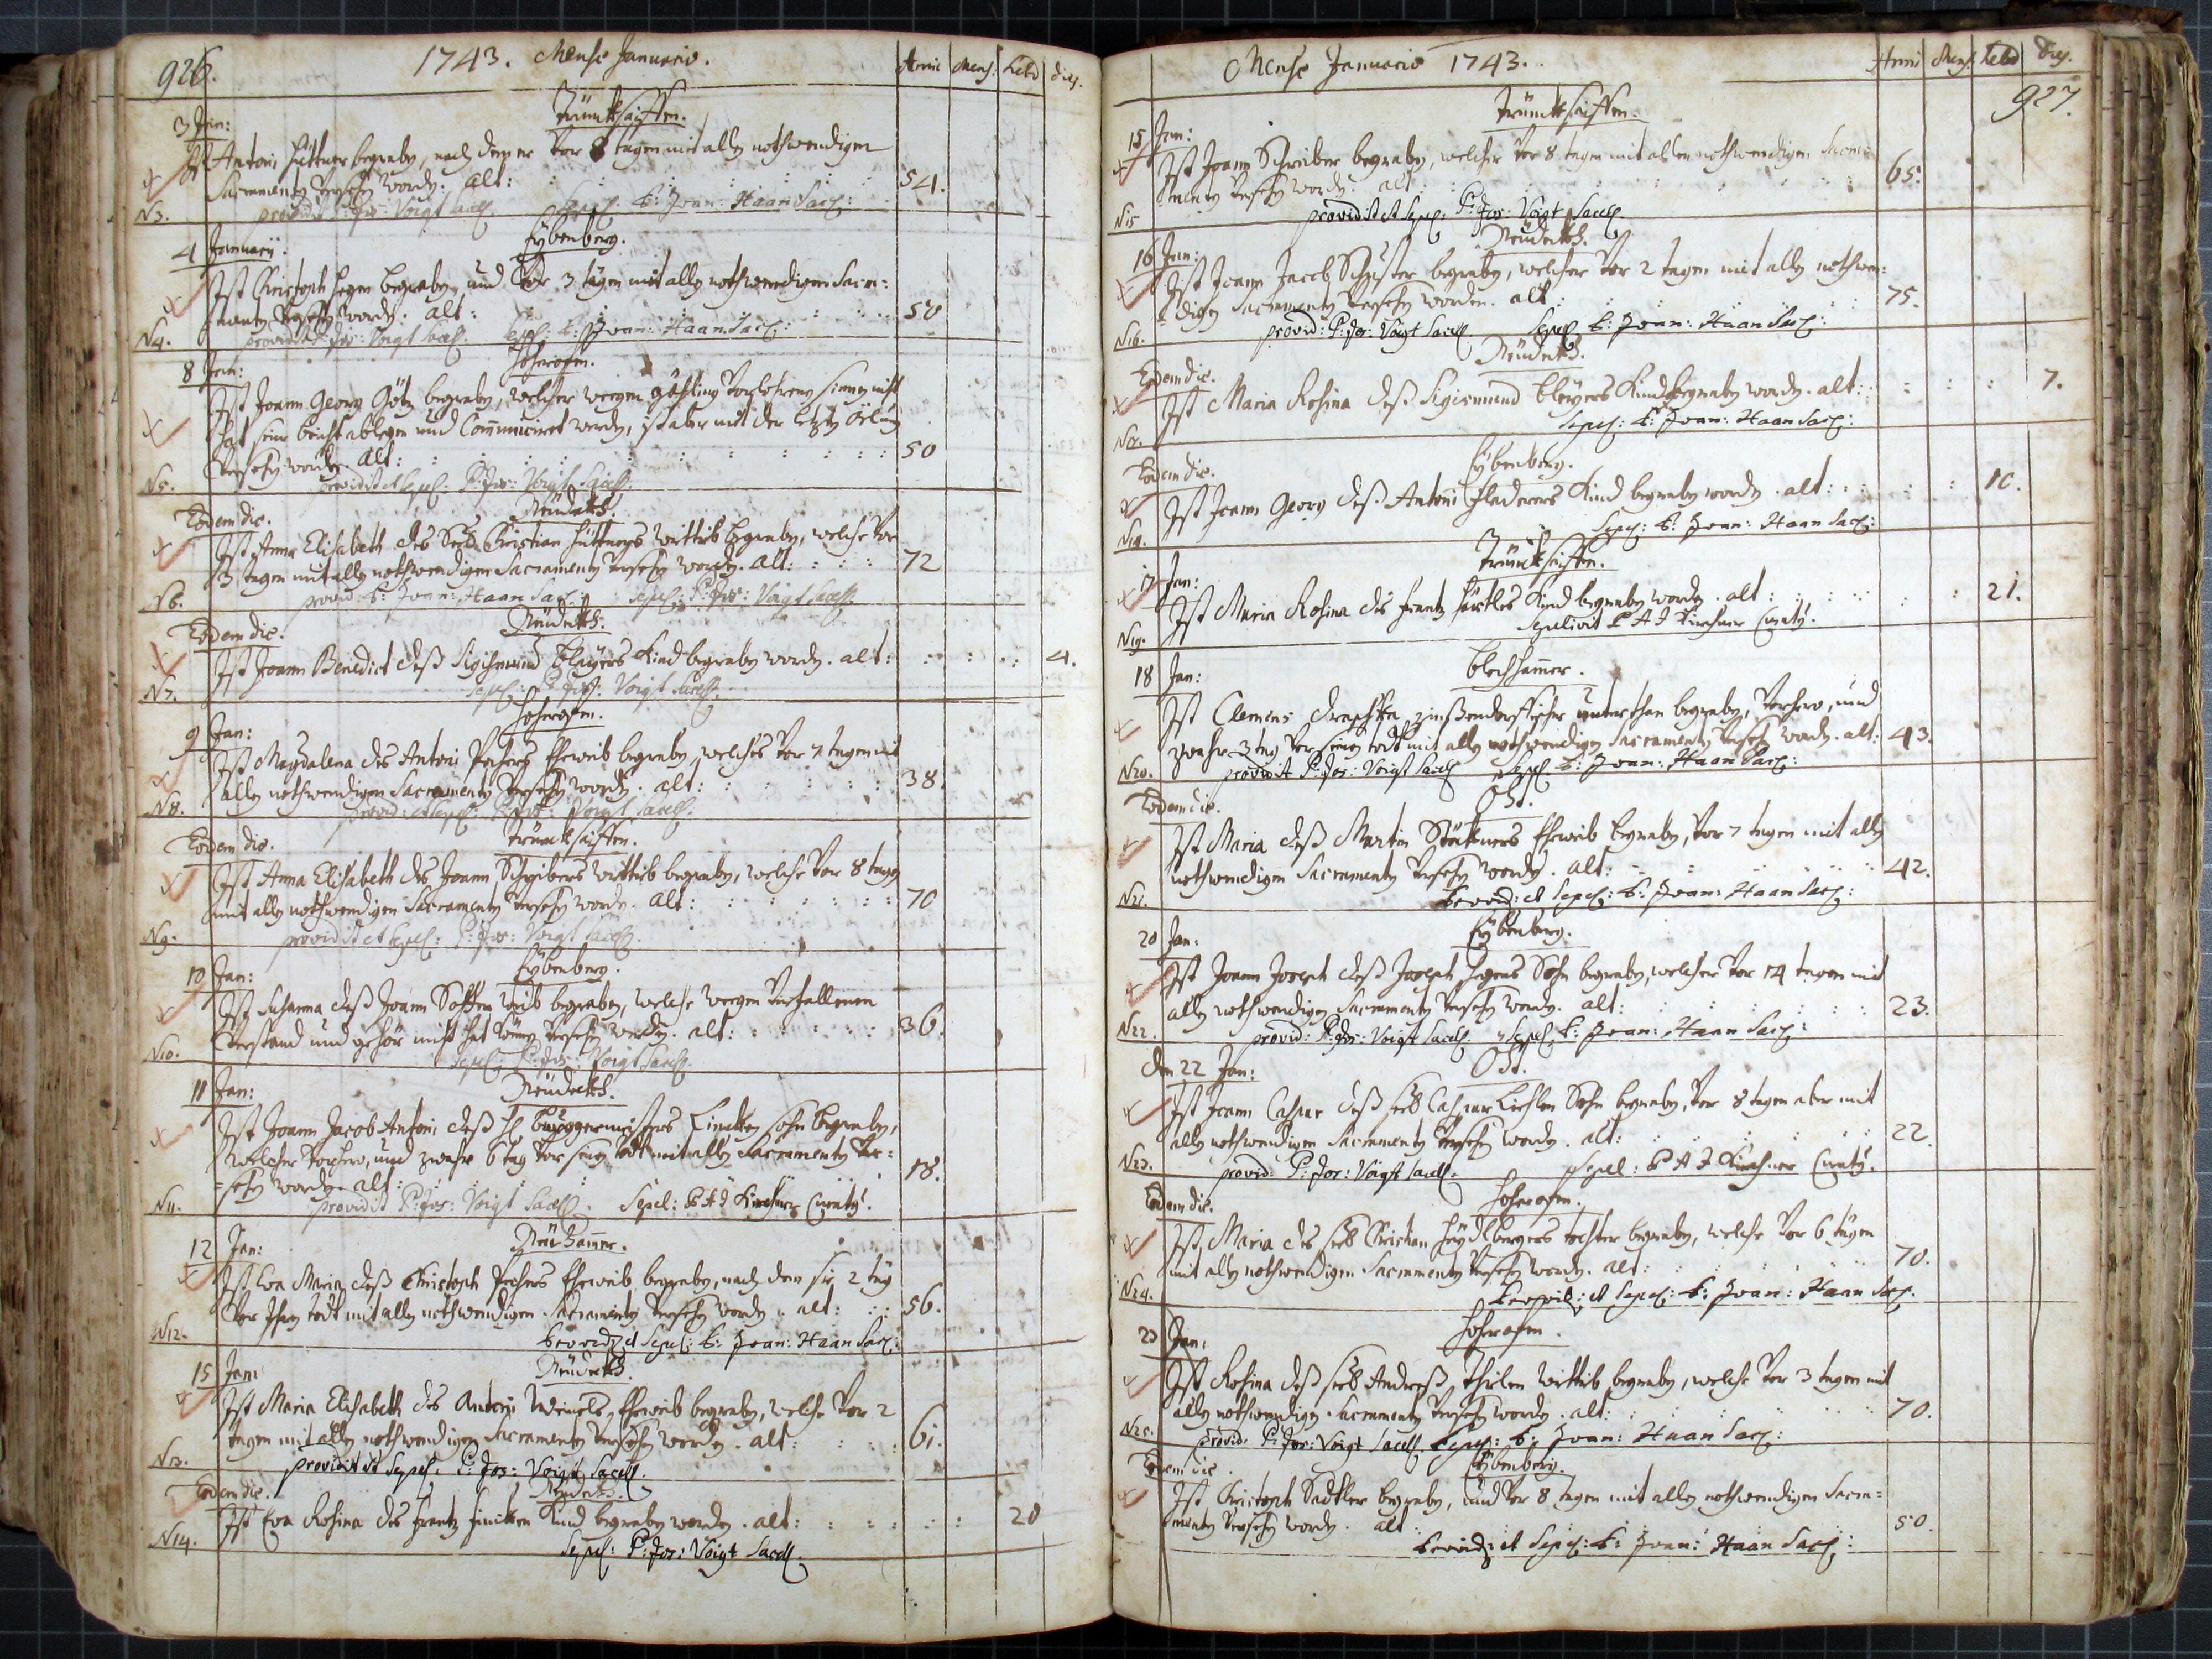 926.
1743. Mense Januario.
Anni Mens. Hebd dies.
Trünckseiffen.
3 Jan:
Ist Antoni Hüttner begraben, nach dem er vor 8 tagen mit allen nothwendigen
Sacramenten versehen worden. alt: 54.
N3. providit P: Jos: Voigt Sacell. Sepel. P: Joan: Haan Sac:
Eybenberg.
4 January.
Ist Christoph begraben, und vor 3 tagen mit allen nothwendigen Sacra=
menten versehen worden. alt: 50
N4. providit P: Jos: Voigt Sacell. Sepel: P: Joan: Haan Sac:
Hoherofen.
8 Jan:
Ist Joann Georg Götz begraben, welcher wegen gähling verlohrenen sinnen nicht
hat seine beicht ablegen und Communiciret werden, ist aber mit der letzten öelung
versehen worden. alt: 50
N5. providit et Sepel: P: Jos: Voigt Sacell.
Neudeckh.
Eodem die.
Ist Anna Elisabeth des Seel. Christian Hüttners wittib begraben, welche vor
3 tagen mit allen nothwendigen Sacramenten versehen worden. alt: 72
N6. provid: P: Joan: Haan Sac. Sepel: P: Jos: Voigt Sacell.
Neudeckh.
Eodem die.
Ist Joann Benedict deß Sigismund Bleyers Kind begraben worden. alt: 4.
N7. Sepel: P: Jos: Voigt Sacell.
Hoherofen.
9 Jan:
Ist Magdalena des Antoni Pechers Eheweib begraben, welches vor 7 tagen mit
allen nothwendigen Sacramenten versehen worden. alt: 38.
N8. provid: et Sepel: P: Jos: Voigt Sacell.
Trünckseiffen.
Eodem die.
Ist Anna Elisabeth des Joann Schreibers wittib begraben, welche vor 8 tagen
mit allen nothwendigen Sacramenten versehen worden. alt: 70
N9. providit et Sepel: P: Jos: Voigt Sacell.
Eybenberg.
10 Jan:
Ist Susanna deß Joann weib begraben, welche wegen verfallenen
verstand und gehör nicht hat können versehen werden. alt: 36.
N10. Sepel: P: Jos: Voigt Sacell.
Neudeckh.
11 Jan:
Ist Joann Jacob Antoni deß H burggermeisters sohn begraben,
welcher vorhero, und zwahr 6 tag vor seinen todt mit allen Sacramenten ver=
=sehen worden. alt: 18.
N11. providit P: Jos: Voigt Sacell. Sepel: P A J Kirchner Curaty.
Neuhamer.
12 Jan:
Ist Eva Maria deß Christoph Pechers Eheweib begraben, nach dem sie 2 tag
vor ihren todt mit allen nothwendigen Sacramenten versehen worden. alt: 56.
N12. Provid: et Sepel: P: Joan: Haan Sac:
Neudeckh.
15 Jan:
Ist Maria Elisabeth des Antoni Eheweib begraben, welche vor 2
tagen mit allen nothwendigen Sacramenten versehen worden. alt: 61.
N13. providit et Sepel. P: Jos: Voigt Sacell.
Neudeckh.
Eodem die.
Ist Eva Rosina des Frantz Kind begraben worden. alt: 20
N14. Sepel: P: Jos: Voigt Sacell.
Mense Januario 1743.
Anni Mens. Hebd Dies.
927.
Trünckseiffen.
15 Jan:
Ist Joann Schreiber begraben, welcher vor 8 tagen mit allen nothwendigen Sacra=
menten versehen worden. alt: 65.
N15 providit et Sepel: P: Jos: Voigt Sacell.
Neudeckh.
16 Jan:
Ist Joann Jacob Schuster begraben, welcher vor 2 tagen mit allen nothwen=
digen Sacramenten versehen worden. alt: 75.
N16. provid: P: Jos: Voigt Sacell. Sepel P: Joan: Haan Sac:
Neudeckh.
Eodem die.
Ist Maria Rosina deß Sigismund Bleyers Kind begraben worden. alt: 7.
Sepel: P: Joan: Haan Sac:
Eybenberg.
Eodem die.
Ist Joann Georg deß Antoni Fladerers Kind begraben worden. alt: 10.
Sepel: P: Joan: Haan Sac:
Trünckseiffen.
17 Jan:
Ist Maria Rosina des Frantz Kind begraben worden. alt: 21.
N19. Sepelivit P A J Kirchner Curaty.
Blechhamer.
18 Jan:
Ist Clemens unterthan begraben, vorhero, und
zwahr 3 tag vor seinen todt mit allen nothwendigen Sacramenten versehen worden. alt: 43.
N20. providit P: Jos: Voigt Sacell Sepel P: Joan: Haan Sac:
Eodem die.
Ist Maria deß Martin Eheweib begraben, vor 7 tagen mit allen
nothwendigen Sacramenten versehen worden. alt: 42.
N21. Provid: et Sepel: P: Joan: Haan Sac:
Eybenberg.
20 Jan:
Ist Joann Joseph deß Joseph Sohn begraben, welcher vor 14 tagen mit
allen nothwendigen Sacramenten versehen worden. alt: 23.
N22. provid: P: Jos: Voigt Sacell. Sepel P: Joan: Haan Sac:
Den 22 Jan:
Ist Joann Caspar deß seel Caspar Sohn begraben, vor 8 tagen aber mit
allen nothwendigen Sacramenten versehen worden. alt: 22.
N23. provid: P: Jos: Voigt Sacell. Sepel: P A J Kirchner Curaty.
Hoherofen.
Eodem die.
Ist Maria des seel Christian Heydlbergers tochter begraben, welche vor 6 tagen
mit allen nothwendigen Sacramenten versehen worden. alt: 70.
N24. Provid: et Sepel: P: Joan: Haan Sac.
Hoherofen.
23 Jan:
Ist Rosina deß seel Andreaß wittib begraben, welche vor 3 tagen mit
allen nothwendigen Sacramenten versehen worden. alt: 70.
N25. provid. P: Jos: Voigt Sacell Sepel: P: Joan: Haan Sac:
Eybenberg.
Eodem die.
Ist Christoph Sadtler begraben, und vor 8 tagen mit allen nothwendigen Sacra=
menten versehen worden. alt: 50.
Provid: et Sepel: P: Joan: Haan Sac: